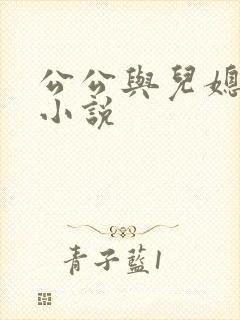 公公與兒媳
小說
青子藍1